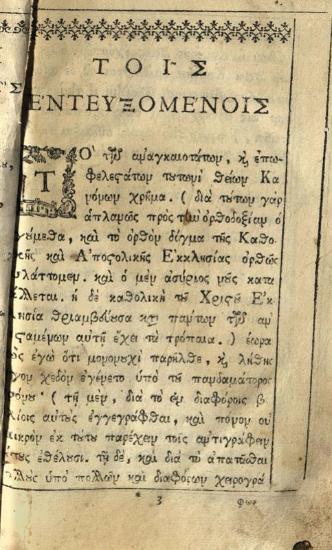 ΤΟΙ͂Σ
ἘΝΤΕΥΞΟΜΕΝΟΙΣ
ΤΟ τῶν ἀναγκαιοτάτων, κỳ ἐπω
φελεστάτων τουτωνὶ θείων Κα
νόνων χρῆμα. ( διὰ τούτων γὰρ
ἀπλανῶς πρὸς τὴν ὀρθοδοξίαν ὁ
γούμεθα, καὶ τὸ ὀρθὸν δόγμα τῆς Καθο
κῆς καὶ Ἀποστολικῆς Ἐκκλησίας ὀρθῶς
υλάττομεν. καὶ ὁ μὲν ἀσύριος νοῦς κατα
άλλεται. ἡ δὲ καθολικὴ τοῦ Χριστοῦ Ἐκ
λησία θριαμβεύουσα κατὰ πάντων τῶν ἀν
σταμένων αὐτῇ ἔχει τὰ τρόπαια. ) ἑώρα
ὡς ἐγὼ ὅτι μονονουχὶ παρῆλθε, κỳ λήθης
γον σχεδὸν ἐγένετο ὑπὸ τοῦ πανδαμάτορος
ρόνου· ( τῇ μὲν, διὰ τὸ ἐν διαφόροις β
λίοις αὐτοὺς ἐγγεγράφθαι, καὶ πόνον οὐ
μικρὸν ἐκ τούτου παρέχειν τοῖς ἀντιγράφειν
τοὺς ἐθέλουσι. τῇ δὲ, καὶ διὰ τὸ ἀπατᾶσθαι
πολλοὺς ὑπὸ πολλῶν καὶ διαφόρων χειρογρά
3 φων